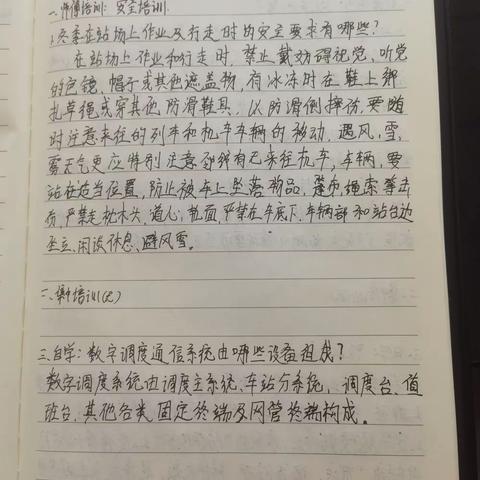 一.师傅培训: 安全培训.
1.冬季在站场上作业及行走时的安全要求有哪些?
在站场上作业和行走时,禁止戴妨碍视觉、听觉
的色镜、帽子或其他遮盖物,有冰冻时在鞋上绑
扎草绳或穿其他防滑鞋具.以防滑倒摔伤,要随
时注意来往的列车和机车车辆的移动.遇风,雪,
雾天气更应特别注意邻线有无来往机车,车辆,要
站在适当位置,防止被车上坠落物品,篷布绳索击
伤,严禁走枕木头,道心,轨面,严禁在车底下.车辆部和站台边
坐立,闲谈休息、避风雪。
二、集中培训(无)
三、自学:数字调度通信系统由哪些设备组成?
数字调度系统由调度主系统、车站分系统,调度台、值
班台、其他各类固定终端及网管终端构成。